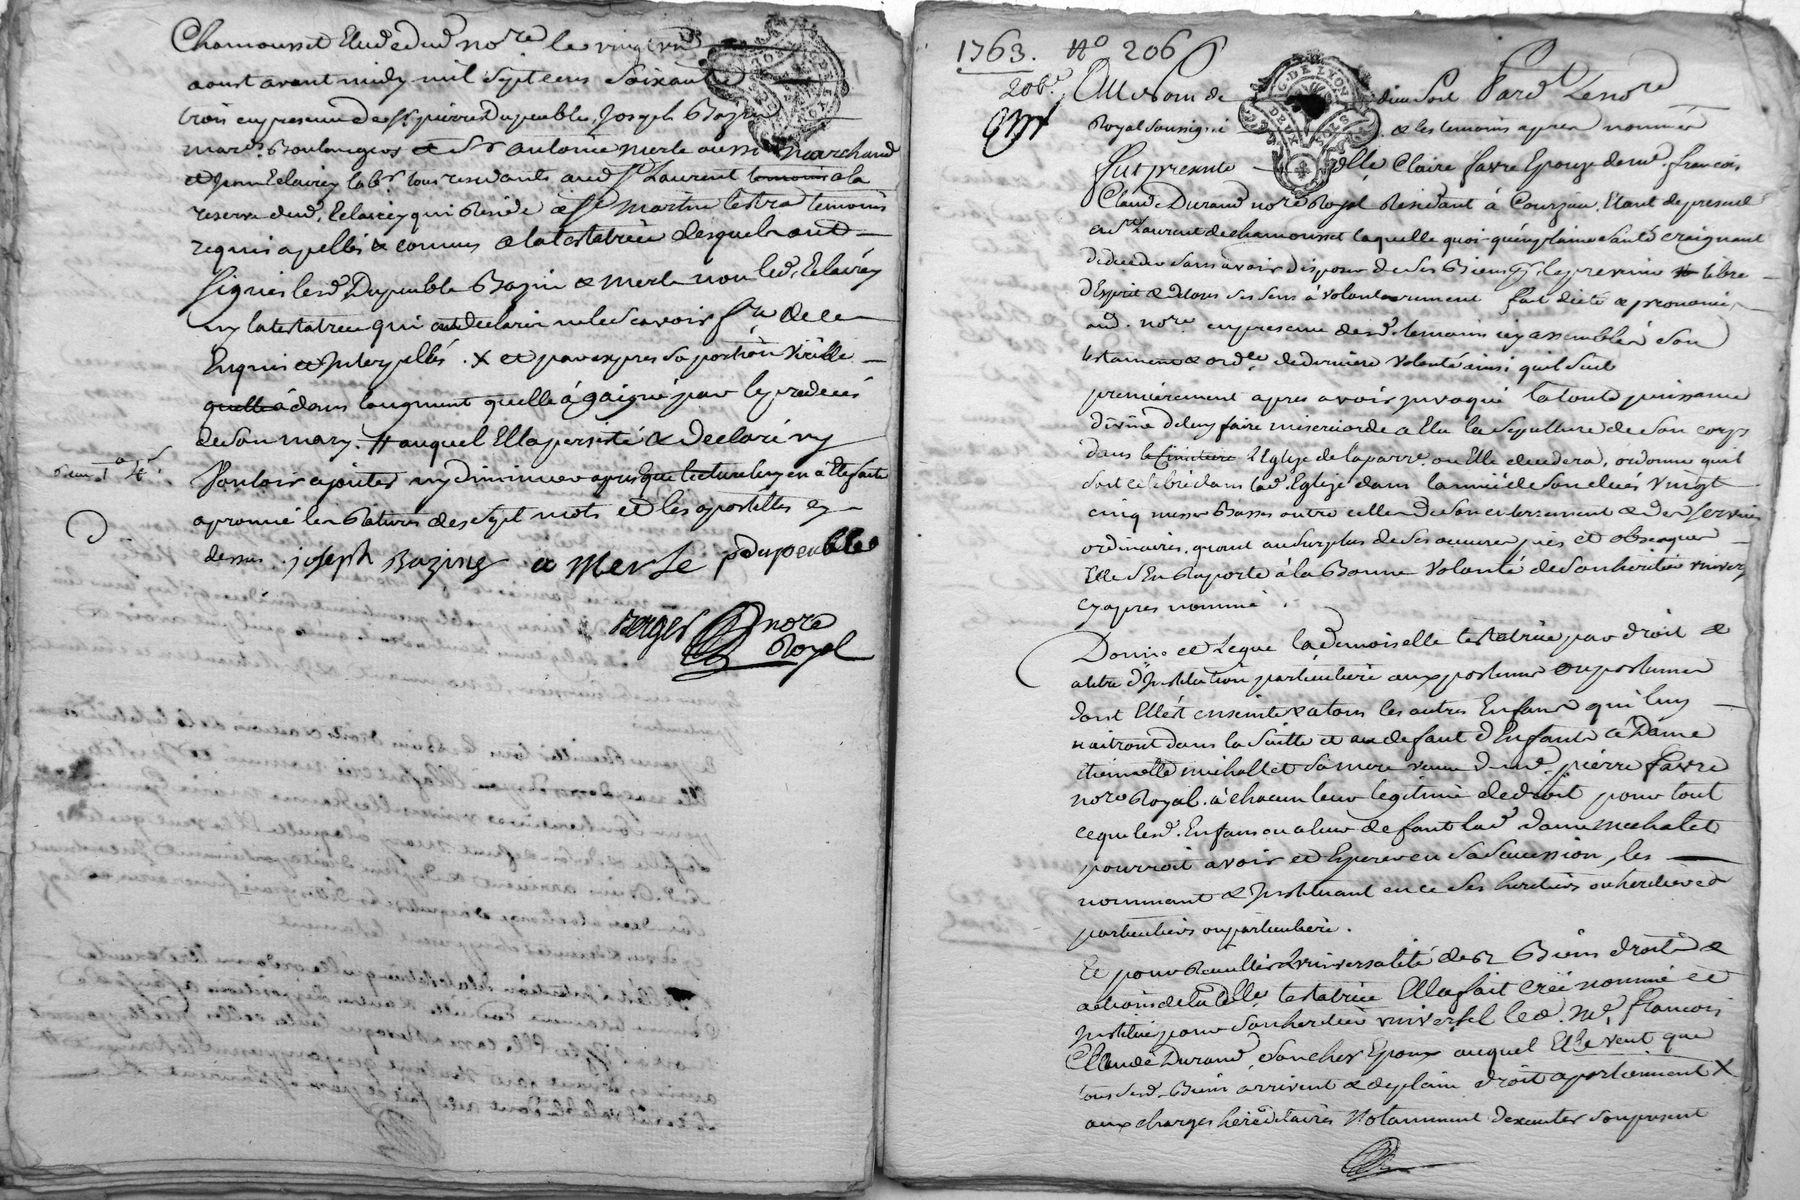 Chamousset Etude dud nore le vingt un
aoust avant midy mil sept cens Soixante
trois en presence de sr pierre Dupeuble, Joseph Bazin
mards Boulangers et Sr antoine merle aussi marchand
et Jean labr tous residants aud St Laurent temoins a la
reserve dud. qui Reside a St martin lestra temoins
requis apellés & connus a la testatrice desquels ont
signés lesd Dupeuble Bazin & merle non led.
ny la testatrice qui ont declaré ne le Scavoir fre de ce
Enquis et Interpellés . X et par expres sa portion virille
quelle a dans laugment quelle a gaigné par le predeces
de Son mary. # auquel Ella persisté & declaré ny
Vouloir ajouter ny diminuer apres que lecture luy en a été faite
aprouvé les Ratures de sept mots et les apostilles cy
dessus joseph Bazing a Merle pdupeuble
Berger nore
Royal
1763. No 206
206e
Au Nom de dieu soit Pardt Le nore
Royal Soussigné & les temoins apres nommés
fut presente delle Claire favre Epouze de me. francois
Claude Durand nore Royal Residant à Courzieu, Etant de present
a St Laurent de chamousset laquelle quoi-quen plaine Santé craignant
de deceder Sans avoir disposé de Ses Biens le prevenir libre
d'Esprit & de tous ses sens à volontairement fait dicté & prononcé
aud. nore en presence desd. temoins icy assemblés son
testament & ordce de derniere volonté ainsi quil suit
premierement apres avoir jnvoqué la toute puissance
divine de luy faire misericorde a Elu la sepulture de Son corps
dans le Cimetiere l'Eglize de la parre. ou Elle decedera, ordonne quil
soit celebré dans lad. Eglize dans lannée de son deces vingt
cinq messes Basses outre celles de son enterrement & des services
ordinaires. quant au surplus de ses œuvres pies et obseques
Elle s'En Raporte à la Bonne volonté de son heritier univerl
cy apres nommé.
Donne et Legue la demoiselle testatrice par droit &
a titre d'Institution particuliere aux postumes ou postumes
dont Elle est enceinte & a tous les autres Enfans qui luy
naitront dans la Suitte et au defaut d'Enfants à Dame
michallet Sa mere veuve de me. pierre favre
nore Royal. à chacun leur legitime de droit pour tout
ce que lesd. Enfans ou a leur defaut lad dame michalet
pourroit avoir et Esperer en Sa Succession, les
nommant & Instituant en ce Ses heritiers ou heritieres
particuliers ou particuliere.
Et pour Recuillir Luniversalité de ses Biens droits &
actions de la delle testatrice Ella fait creé nommé et
Institué pour Son heritier universel led. Me. francois
Claude Durand, Son cher Epoux auquel Elle veut que
tous sesd. Biens arrivent & de plain droit apartiennent X
aux charges hereditaires Notamment dexecuter Son present